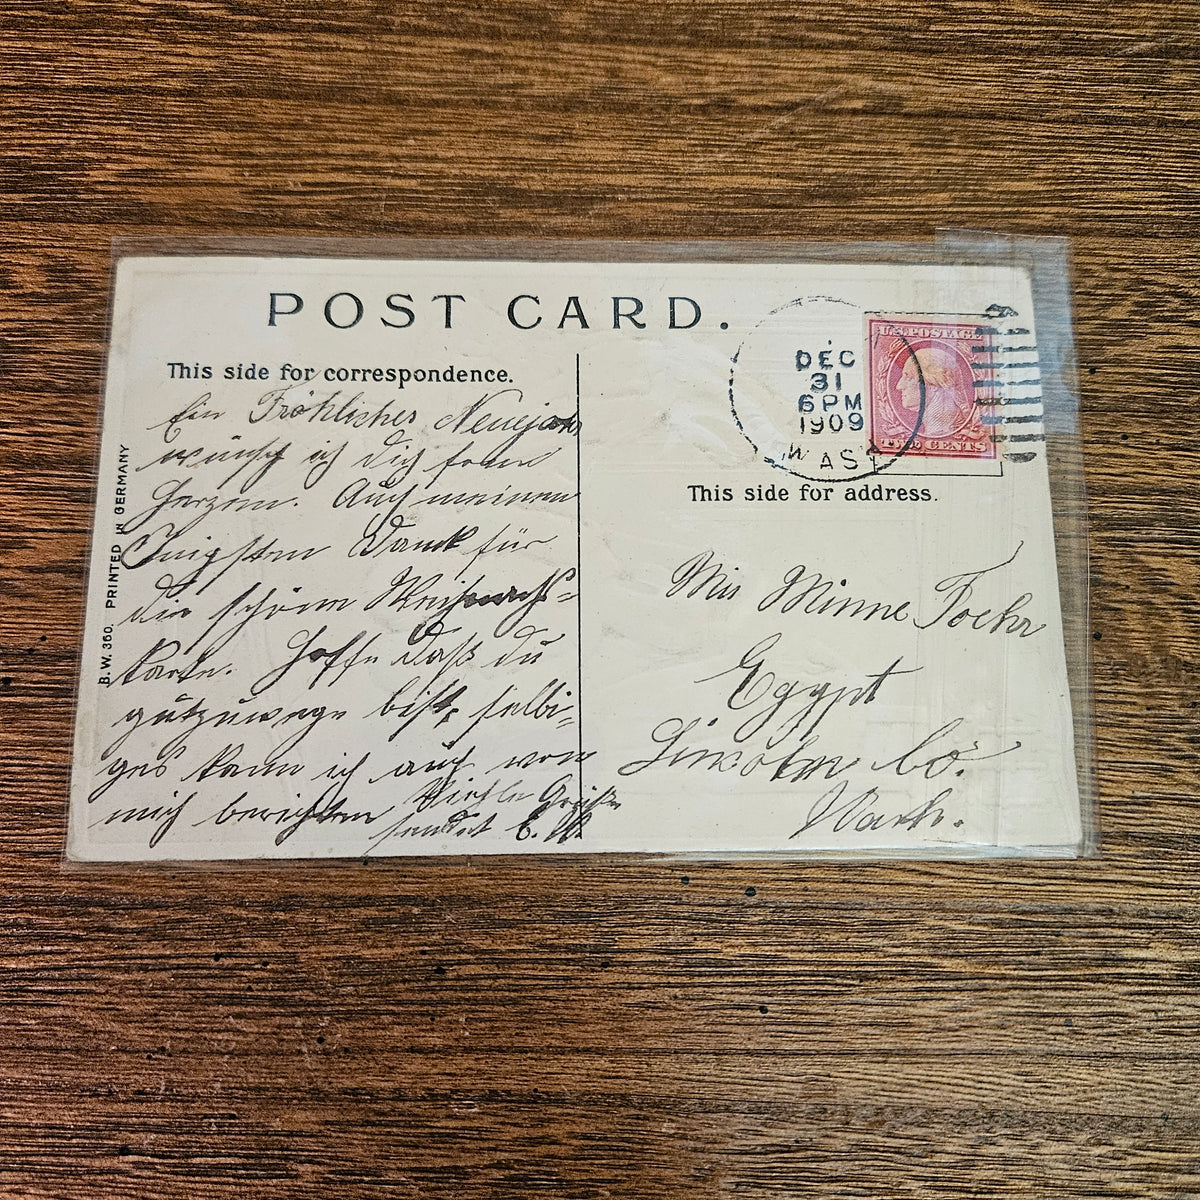 POST CARD.
This side for correspondence.
Ein Fröhlicher Neuejahr
wünsch ich dich from
Herzen. Auch meinen
Inigsten Dank für
die schöne Weihnachs-
karte. Hoffe daß du
gutzuwege bist, selbi-
ges kann ich auch von
mich berichten Viehle Grüße
sendet
B. W. 360. PRINTED IN GERMANY
DEC
31
6 PM
1909
WASH
U.S. POSTAGE
TWO CENTS
This side for address.
Miss Minne Foehr
Egypt
Lincoln Co.
Wash.